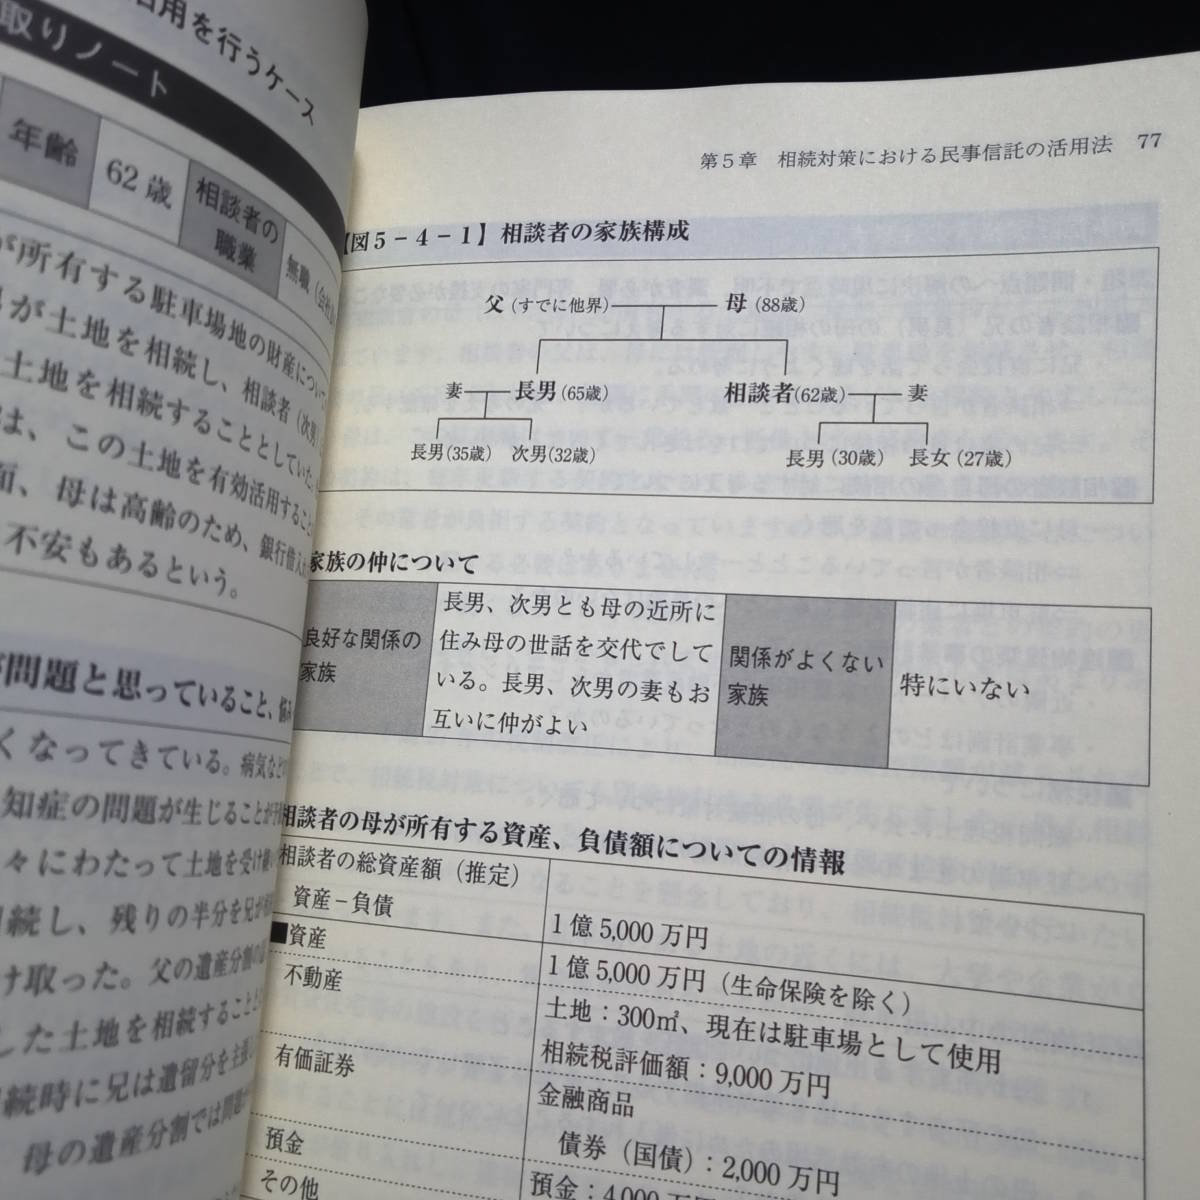 活用を行うケース
取りノート
年齢
62歳
相談者の
職業
無職
が所有する駐車場地の財産につい
が土地を相続し、相談者（次男
土地を相続することとしていた
は、この土地を有効活用するこ
面、母は高齢のため、銀行借入
不安もあるという。
問題と思っていること、悩み
くなってきている。病気など
知症の問題が生じることが
々にわたって土地を受け継
相続し、残りの半分を兄が
け取った。父の遺産分割の
した土地を相続すること
続時に兄は遺留分を主
母の遺産分割では問
第5章　相続対策における民事信託の活用法　77
【図5－4－1】相談者の家族構成
父（すでに他界）　母（88歳）
妻　長男（65歳）　相談者（62歳）　妻
長男（35歳）　次男（32歳）　長男（30歳）　長女（27歳）
家族の仲について
良好な関係の
家族
長男、次男とも母の近所に
住み母の世話を交代でして
いる。長男、次男の妻もお
互いに仲がよい
関係がよくない
家族
特にいない
相談者の母が所有する資産、負債額についての情報
相談者の総資産額（推定）
資産－負債
1億5,000万円
■資産
1億5,000万円（生命保険を除く）
不動産
土地：300㎡、現在は駐車場として使用
相続税評価額：9,000万円
有価証券
金融商品
債券（国債）：2,000万円
預金
預金：4,000万円
その他